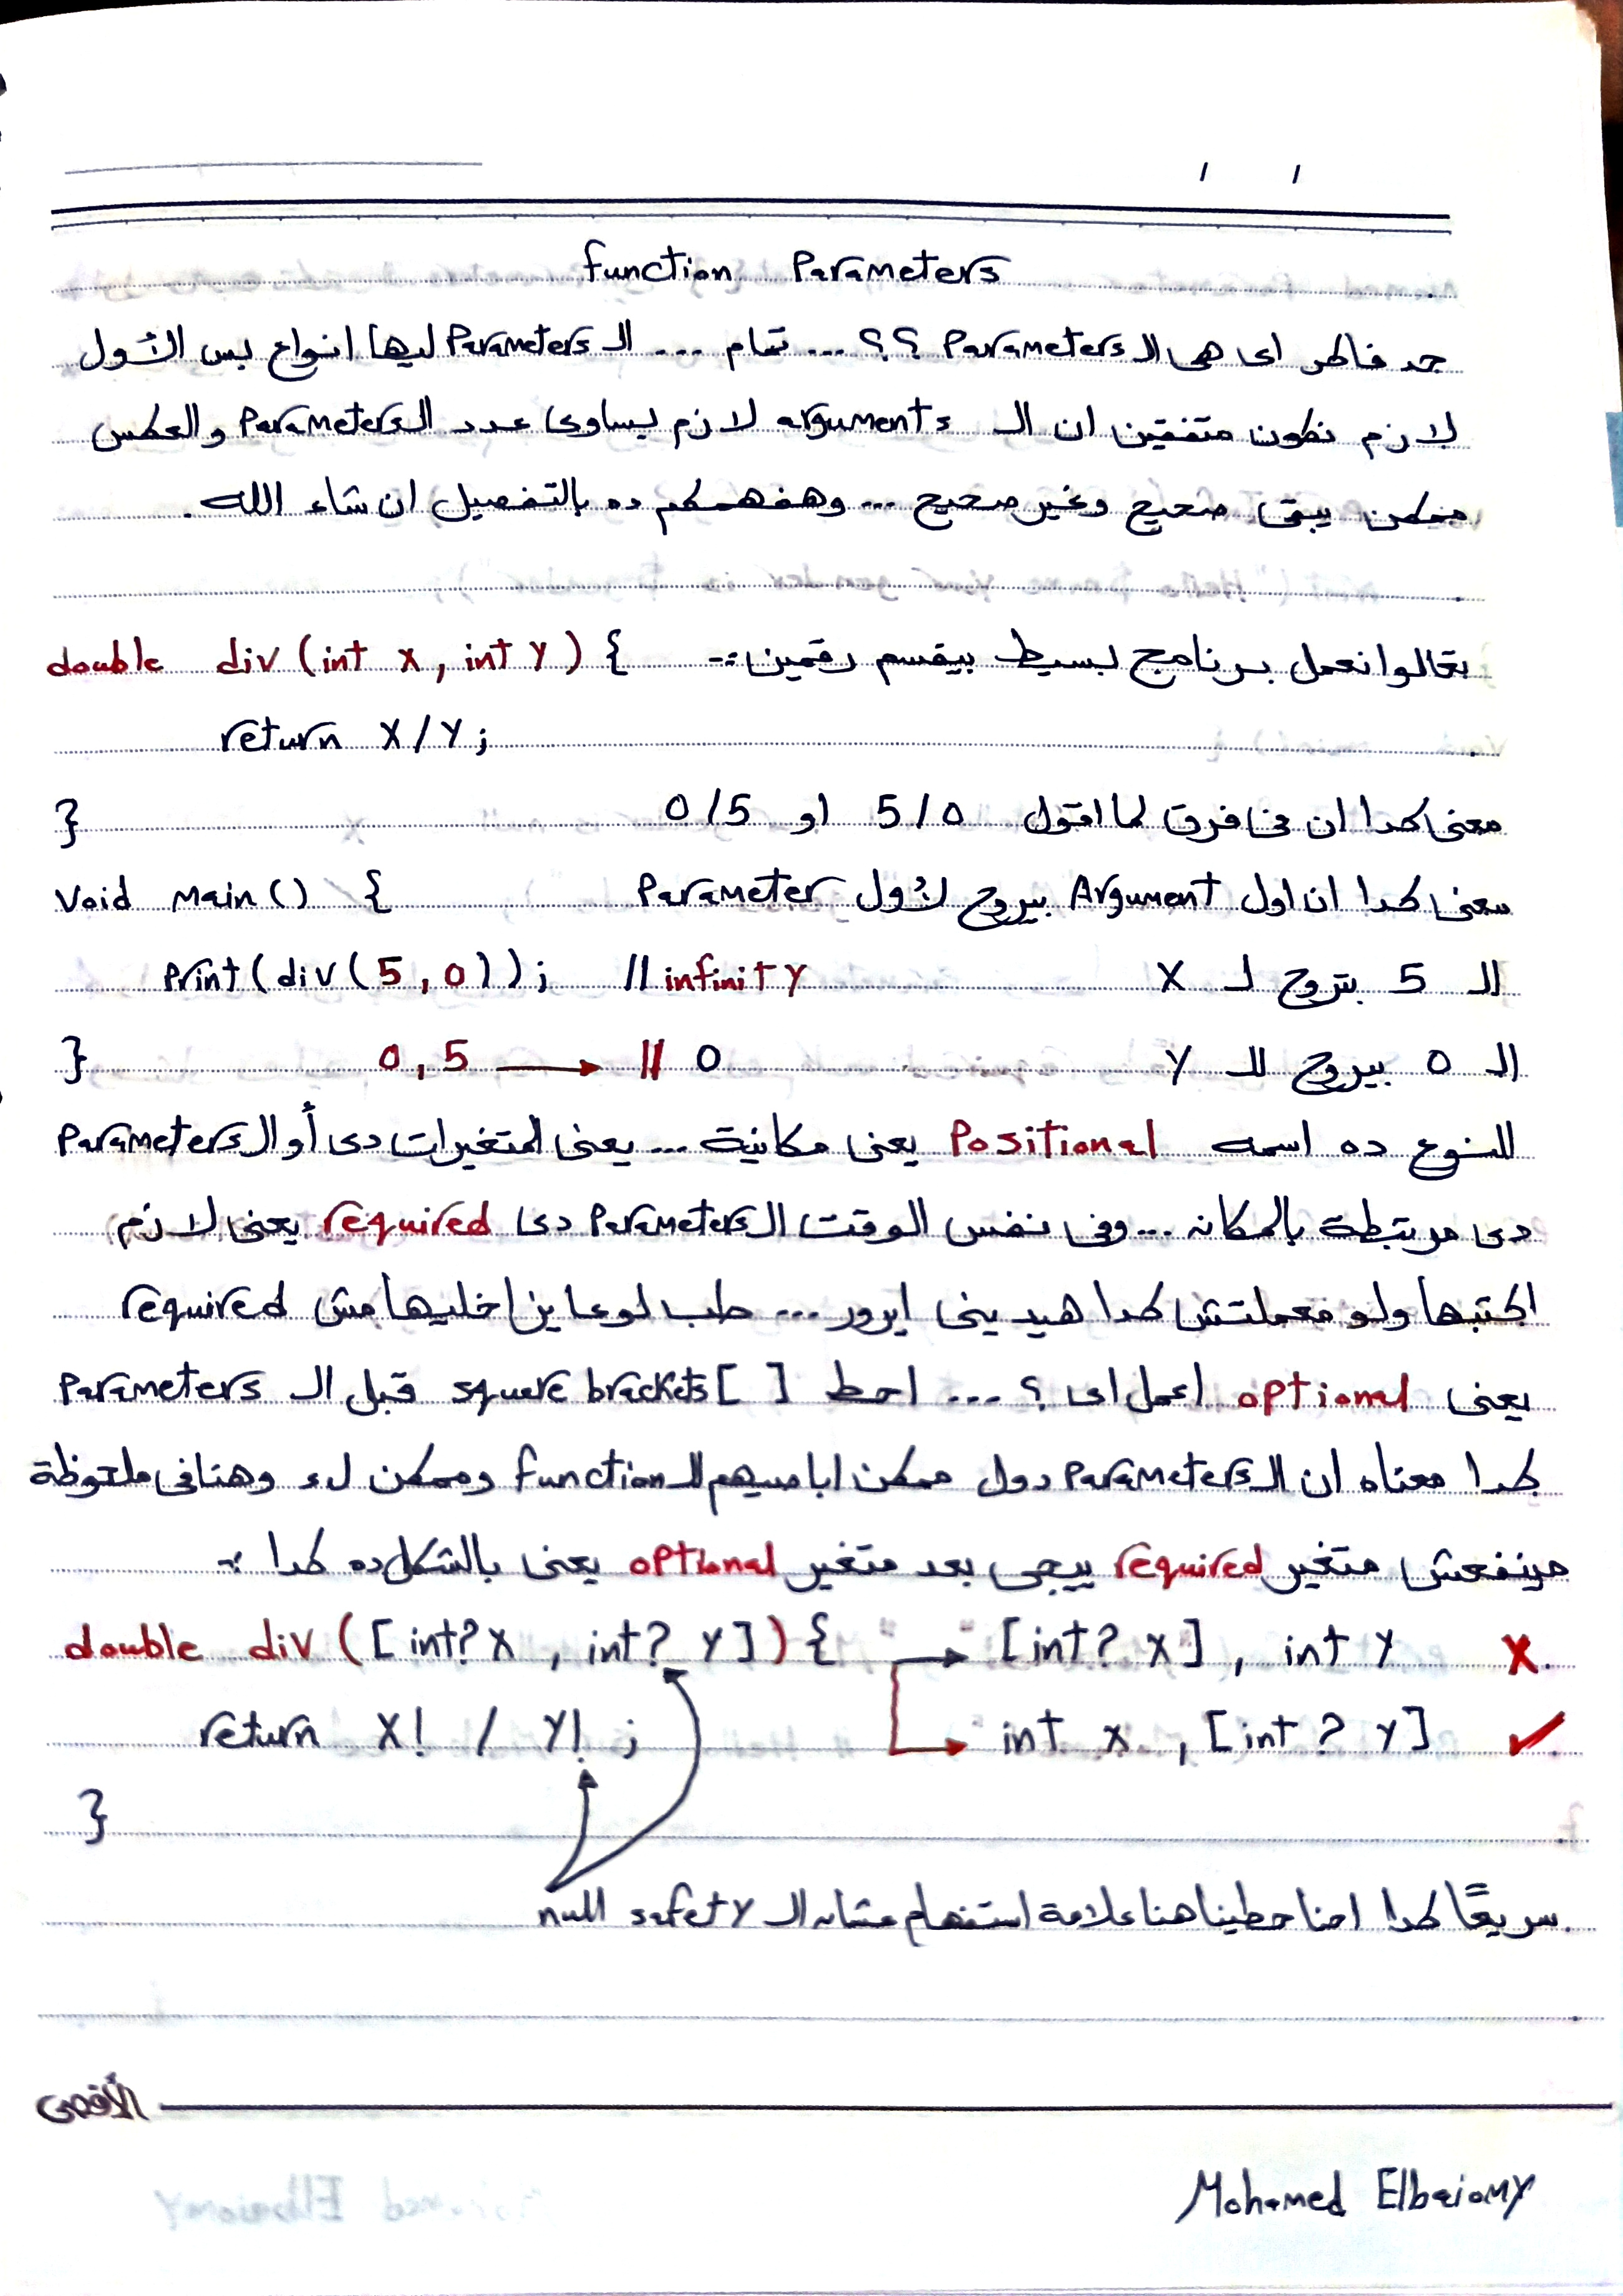 / /
Function Parameters
حد فاكر اى هى الـ Parameters ؟؟ ... تمام ... الـ Parameters ليها انواع بس الأول
لازم نكون متفقين ان الـ arguments لازم يساوى عدد الـ Parameters والعكس
ممكن يبقى صحيح وغير صحيح ... وهفهمكم ده بالتفصيل ان شاء الله .
تعالوا نعمل برنامج بسيط بيقسم رقمين :- double div (int x, int y) {
return x / y ;
معنى كدا ان فى فرق لما اقول 5/0 او 0/5 }
معنى كدا ان اول Argument بيروح لأول Parameter void main () {
الـ 5 بتروح لـ x print (div (5, 0)) ; // infinity
الـ 0 بيروح للـ y 0, 5 → // 0 }
النوع ده اسمه Positional يعنى مكانية ... يعنى المتغيرات دى أو الـ Parameters
دى مرتبطة بالمكان ... وفى نفس الوقت الـ Parameters دى required يعنى لازم
اكتبها ولو معملتش كدا هيدينى ايرور ... طب لو عايز اخليها مش required
يعنى optional اعمل اى ؟ ... احط [ ] square brackets قبل الـ Parameters
كدا معناه ان الـ Parameters دول ممكن اباصيهم للـ function وممكن لاء وهنا فى ملحوظة
مينفعش متغير required ييجى بعد متغير optional يعنى بالشكل ده كدا :-
double div ([int? x , int? y]) { → [int? x] , int y ✗
return x! / y! ; → int x , [int ? y] ✓
}
سريعًا كدا احنا حطينا هنا علامة استفهام عشان الـ null safety
الأقصى
Mohamed Elbaiomy